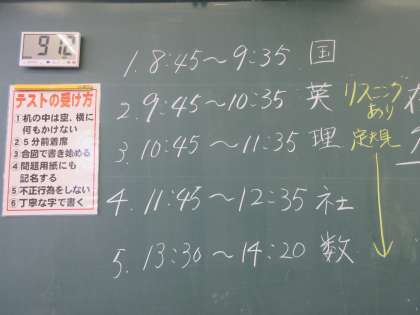 912
テストの受け方
1 机の中は空、横に
何もかけない
2 5分前着席
3 合図で書き始める
4 問題用紙にも
記名する
5 不正行為をしない
6 丁寧な字で書く
1. 8:45〜9:35 国
2. 9:45〜10:35 英
3. 10:45〜11:35 理
4. 11:45〜12:35 社
5. 13:30〜14:20 数
リスニング
あり